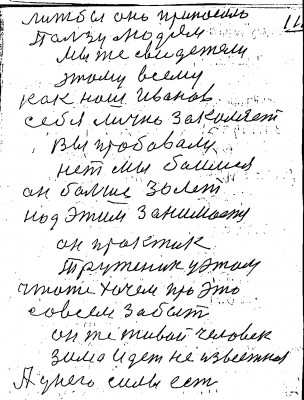 лижбы онь приносиль
Пользу людям
мы же свидетели
этому всему
как наш Иванов
себя лично закаляет
Вы пробовали
нет мы боимся
он больше 30 лет
над этим занимается
он практик
Труженик у этом
чтоже хочем про это
совсем забыт
он же живой человек
зима идет не известная
А у него силы ест